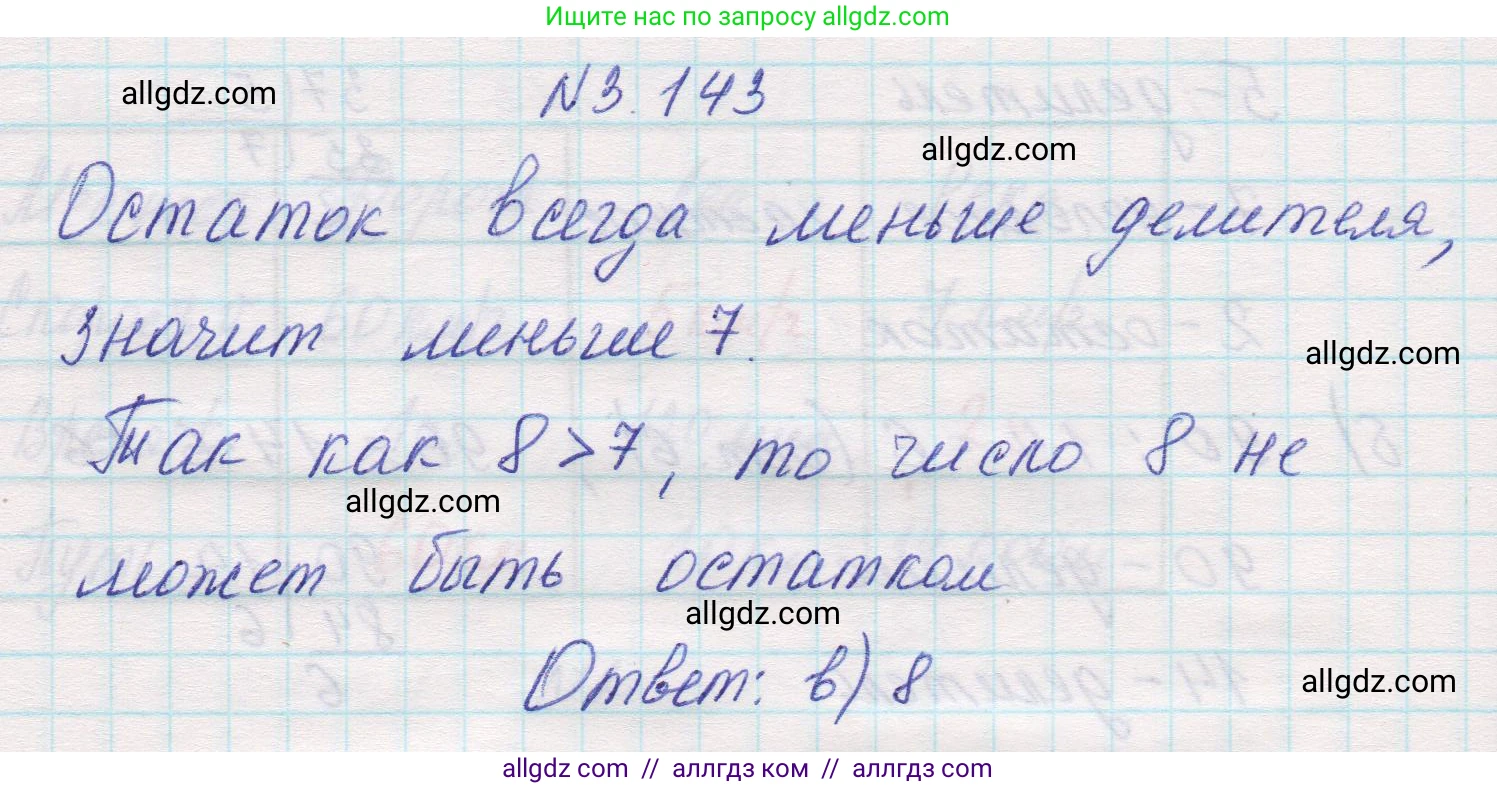 Ищите нас по запросу allgdz.com
allgdz.com
№3.143
allgdz.com
Остаток всегда меньше делителя,
значит меньше 7.
allgdz.com
Так как 8 > 7, то число 8 не
allgdz.com
может быть остатком
allgdz.com
Ответ: в) 8
allgdz.com
allgdz com // аллгдз ком // аллгдз com